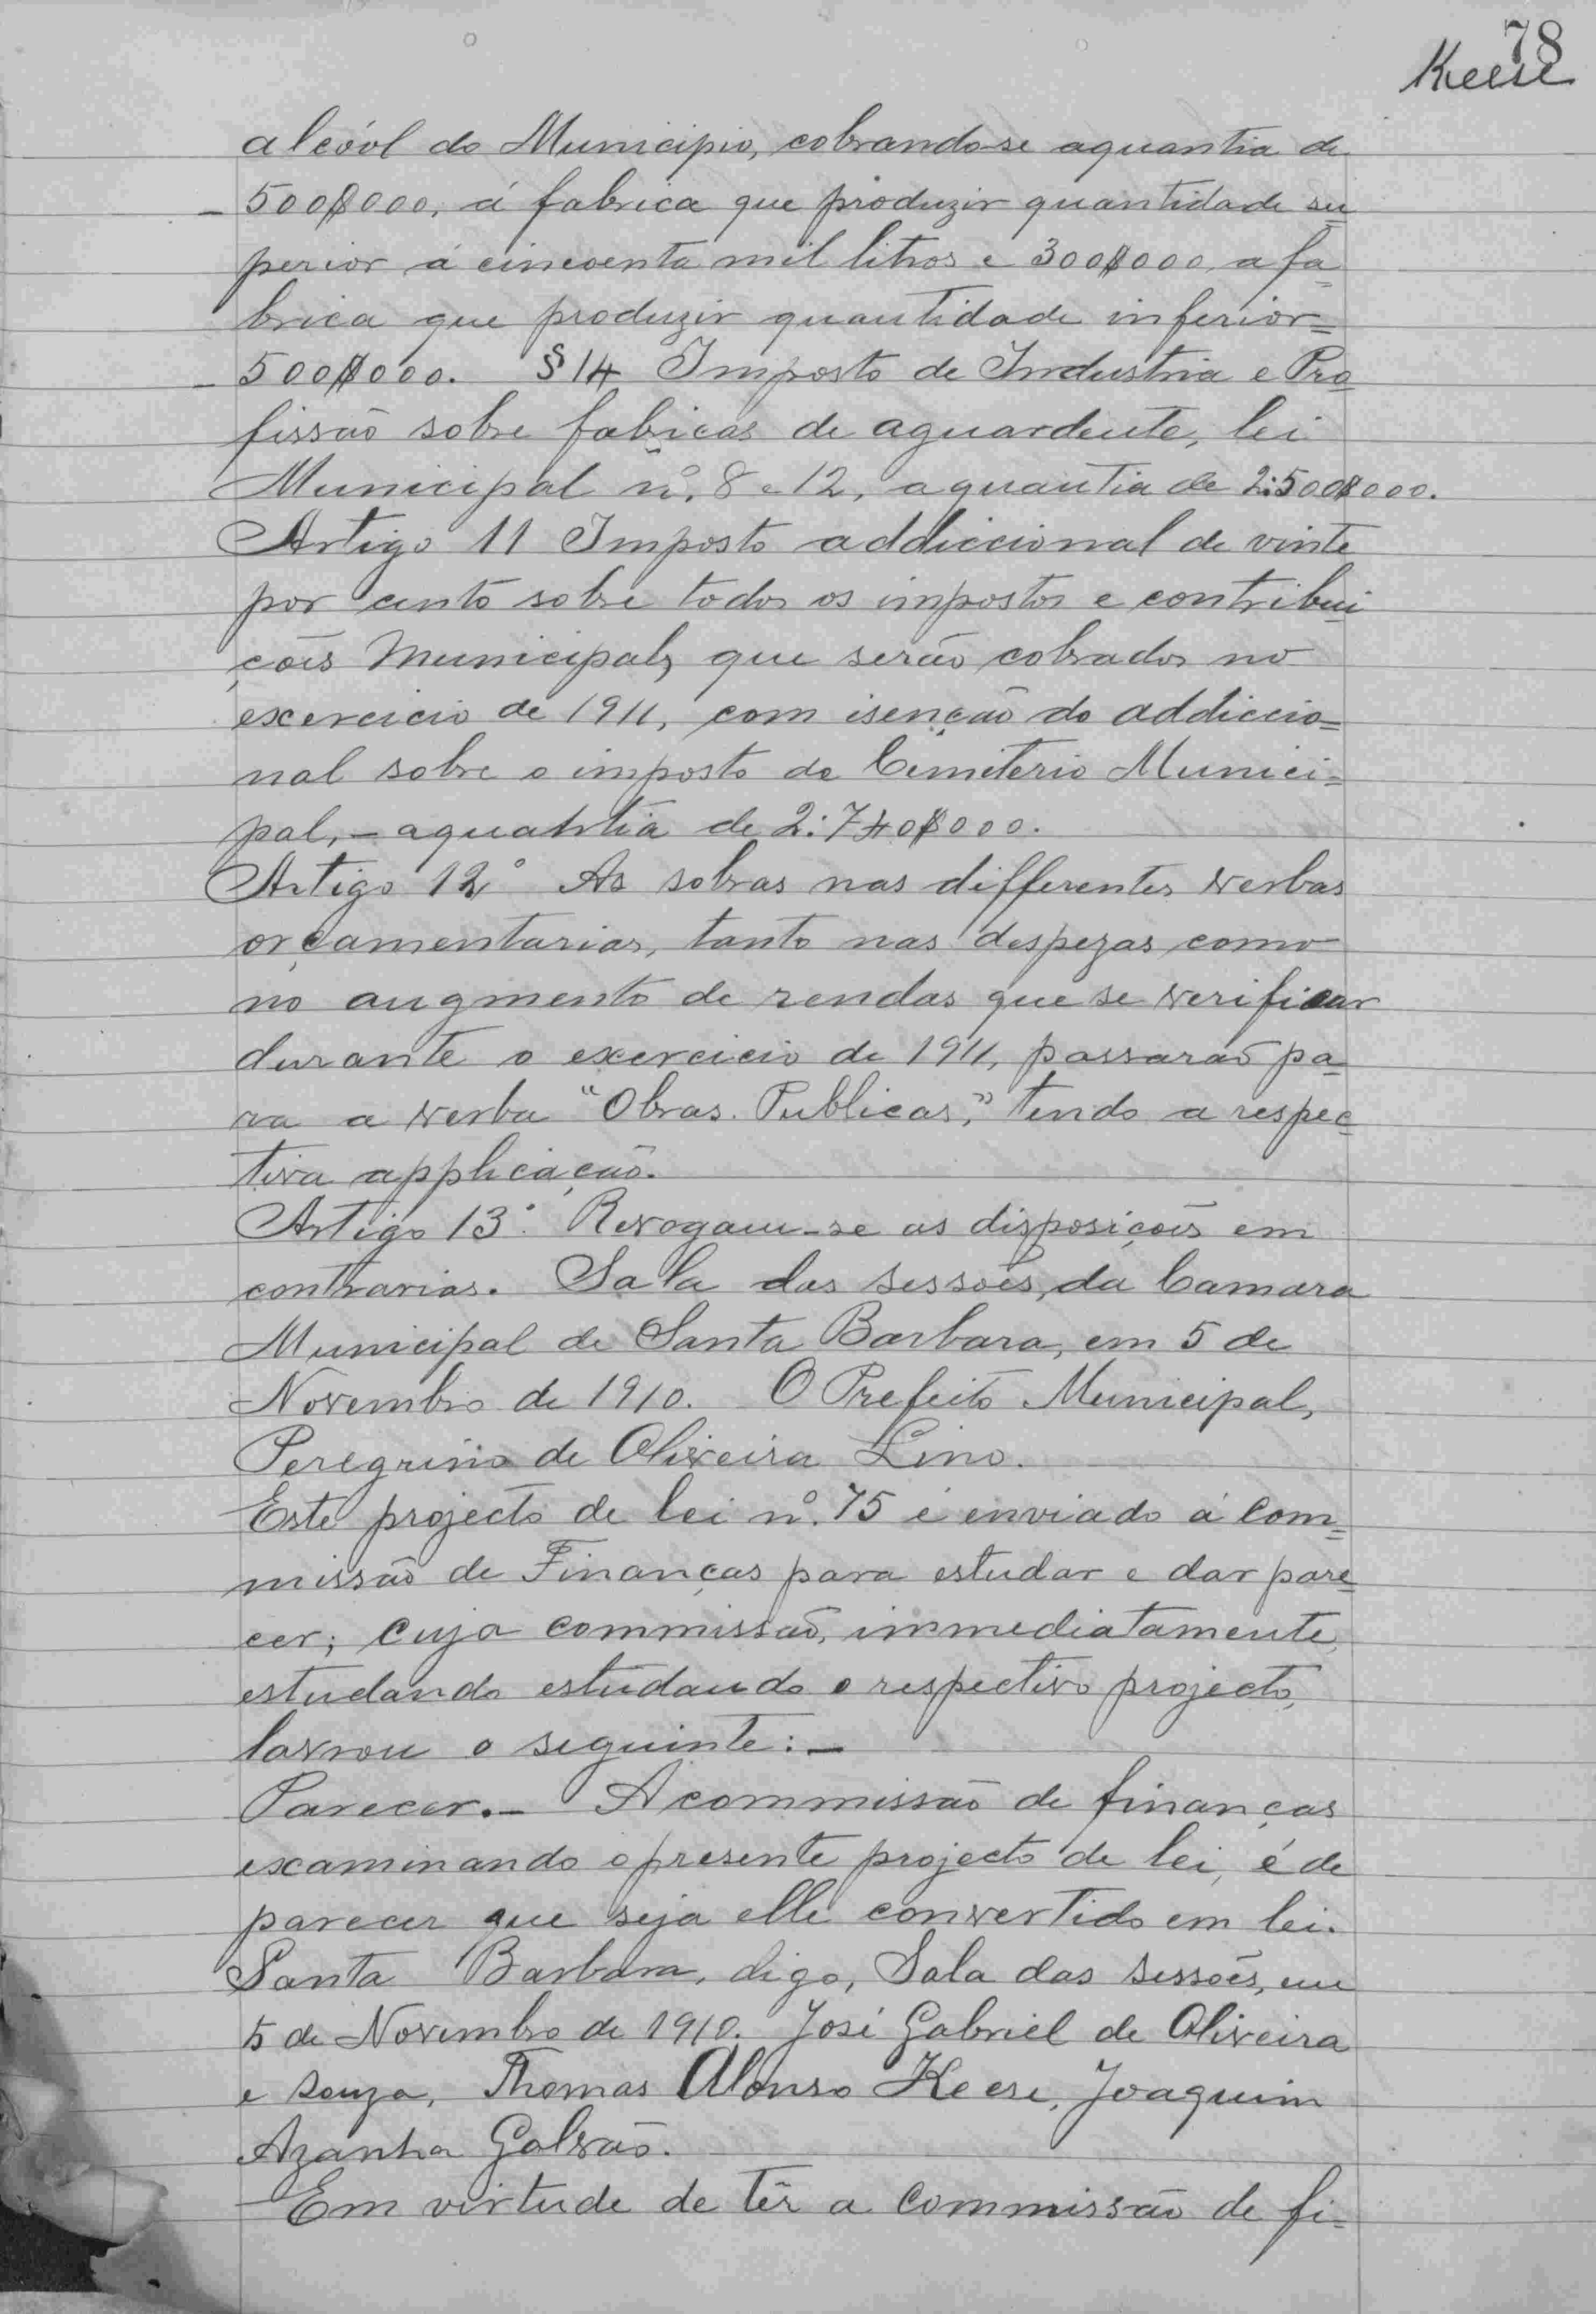 78
Keese
alcóol do Municipio, cobrando-se aquantia de
500$000, á fabrica que produzir quantidade su
perior á cincoenta mil litros e 300$000, a fa
brica que produzir quantidade inferior=
500$000. §14 Imposto de Industria e Pro
fissão sobre fabicas de aguardente, lei
Municipal nº. 8 e 12, aquantia de 2:500$000.
Artigo 11 Imposto addiccional de vinte
por cento sobre todos os impostos e contribui
ções Municipals, que serão cobrados no
exercicio de 1911, com isenção do addiccio=
nal sobre o imposto do Cemiterio Munici=
pal, - aquantia de 2:740$000.
Artigo 12º As sobras nas differentes verbas
orçamentarias, tanto nas despezas como
no augmento de rendas que se verificar
durante o exercicio de 1911, passarão pa
ra a verba "Obras. Publicas," tendo a respec
tiva applicação.
Artigo 13º. Revogam-se as disposições em
contrarias. Sala das sessões, da Camara
Municipal de Santa Barbara, em 5 de
Novembro de 1910. O Prefeito Municipal,
Peregrino de Oliveira Lino.
Este projecto de lei nº. 75 é enviado á Com=
missão de Finanças para estudar e dar pare
cer; cuja commissão, immediatamente,
estudando estudando o respectivo projecto,
lavrou o seguinte: -
Parecer. - A commissão de finanças
examinando o presente projecto de lei, é de
parecer que seja elle convertido em lei.
Santa Barbara, digo, Sala das sessões, em
5 de Novembro de 1910. José Gabriel de Oliveira
e Souza, Thomas Alonso Keese, Joaquim
Azanha Galvão.
Em virtude de têr a Commissão de fi=